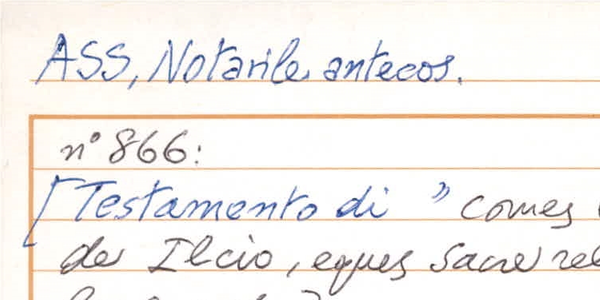 ASS, Notarile antecos.
n° 866:
[Testamento di "comes
de Ilcio, eques sacre rel